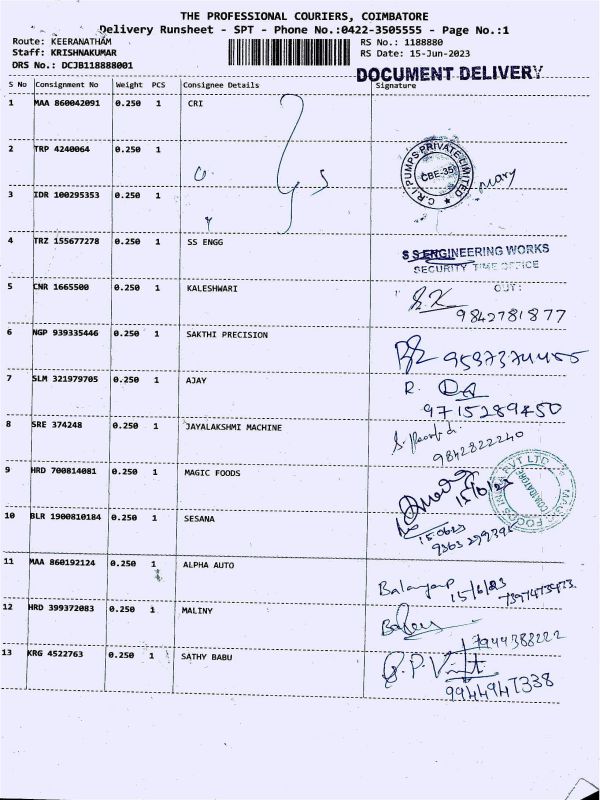 THE PROFESSIONAL COURIERS, COIMBATORE
Delivery Runsheet - SPT - Phone No.:0422-3505555 - Page No.:1
Route: KEERANATHAM RS No.: 1188880
Staff: KRISHNAKUMAR RS Date: 15-Jun-2023
DRS No.: DCJB118888001
DOCUMENT DELIVERY
S No Consignment No Weight PCS Consignee Details Signature
1 MAA 860042091 0.250 1 CRI
2 TRP 4240064 0.250 1
C.R.I PUMPS PRIVATE LIMITED
CBE-35
3 IDR 100295353 0.250 1
4 TRZ 155677278 0.250 1 SS ENGG
S S ENGINEERING WORKS
SECURITY TIME OFFICE
OUT:
5 CNR 1665500 0.250 1 KALESHWARI
9842781877
6 NGP 939335446 0.250 1 SAKTHI PRECISION
7 SLM 321979705 0.250 1 AJAY
R.
9715289450
8 SRE 374248 0.250 1 JAYALAKSHMI MACHINE
9842822240
9 HRD 700814081 0.250 1 MAGIC FOODS
COIMBATORE
10 BLR 1900810184 0.250 1 SESANA
15.06.23
11 MAA 860192124 0.250 1 ALPHA AUTO
15/6/23
12 HRD 399372083 0.250 1 MALINY
7944388222
13 KRG 4522763 0.250 1 SATHY BABU
9944947338